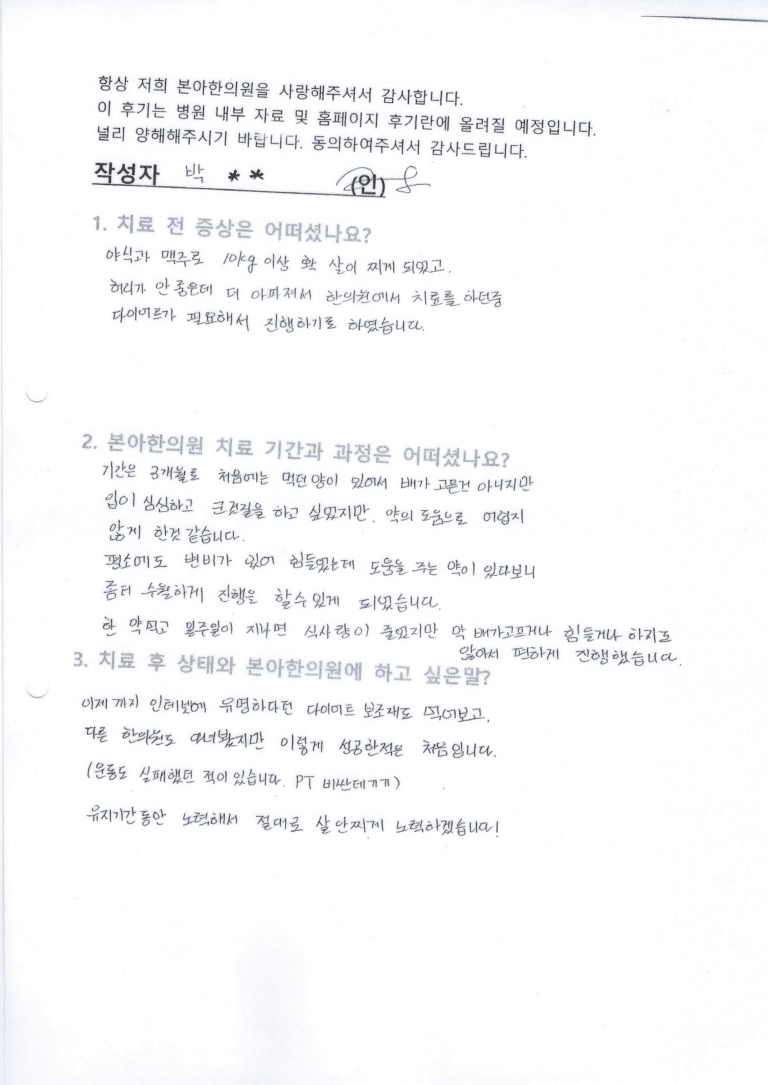 항상 저희 본아한의원을 사랑해주셔서 감사합니다.
이 후기는 병원 내부 자료 및 홈페이지 후기란에 올려질 예정입니다.
널리 양해해주시기 바랍니다. 동의하여주셔서 감사드립니다.
작성자 박 ** (인)
1. 치료 전 증상은 어떠셨나요?
야식과 맥주로 10kg 이상 확 살이 찌게 되었고,
허리가 안 좋은데 더 아파져서 한의원에서 치료를 하던중
다이어트가 필요해서 진행하기로 하였습니다.
2. 본아한의원 치료 기간과 과정은 어떠셨나요?
기간은 3개월로 처음에는 먹던 양이 있어서 배가 고픈건 아니지만
입이 심심하고 군것질을 하고 싶었지만, 약의 도움으로 어렵지
않게 한것 같습니다.
평소에도 변비가 있어 힘들었는데 도움을 주는 약이 있다보니
좀더 수월하게 진행을 할수있게 되었습니다.
한 약먹고 일주일이 지나면 식사량이 줄었지만 막 배가고프거나 힘들거나 하지도
않아서 편하게 진행했습니다.
3. 치료 후 상태와 본아한의원에 하고 싶은말?
이제까지 인터넷에 유명하다던 다이어트 보조재도 먹어보고,
다른 한의원도 다녀봤지만 이렇게 성공한적은 처음입니다.
(운동도 실패했던 적이 있습니다. PT 비싼데ㅠㅠ)
유지기간동안 노력해서 절대로 살 안찌게 노력하겠습니다!